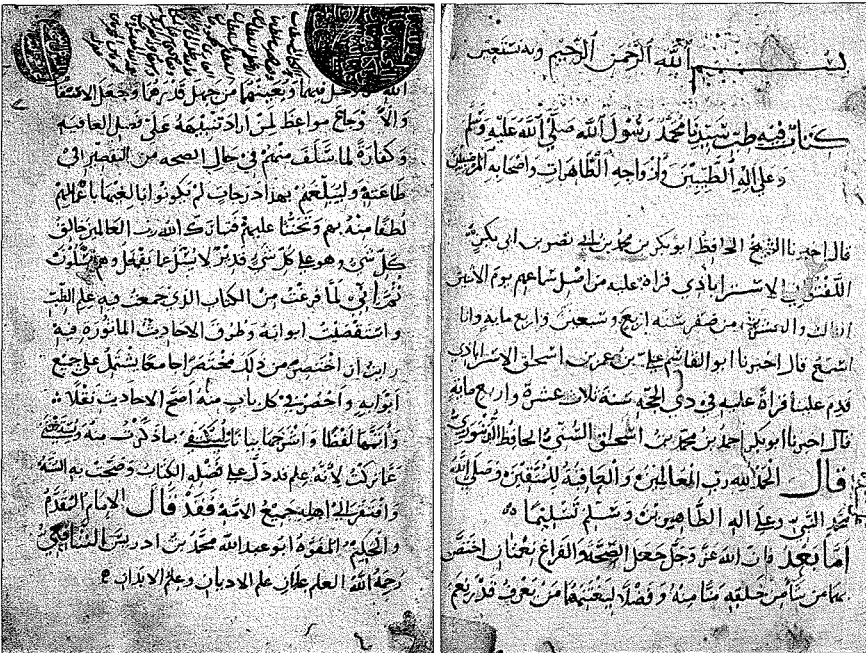 بسم الله الرحمن الرحيم وبه نستعين
كتاب فيه طب سيدنا محمد رسول الله صلى الله عليه وسلم
وعلى اله الطيبين وازواجه الطاهرات واصحابه
قال اخبرنا الشيخ الحافظ ابو بكر بن محمد بن ابي نصر بن ابي بكر
الاسترابادي قراة عليه من اصل سماعهم يوم الاثنين
الثالث والعشرين من صفر سنة اربع وسبعين واربع مايه وانا
اسمع قال اخبرنا ابو القاسم علي بن عمر بن اسحاق الاسترابادي
قدم علينا قراة عليه في ذي الحجه سنة ثلاث عشرة واربع مايه
قال اخبرنا ابو بكر احمد بن محمد بن اسحاق السني الحافظ الدينوري
قال الحمد لله رب العالمين والعاقبة للمتقين وصلى الله
محمد النبي وعلى اله الطاهرين وسلم تسليما
اما بعد فان الله عز وجل جعل الصحة والفراغ نعمتان اختص
بهما من يشا من خلقه منا منه وفضلا ليغتنمهما من يعرف قدر نعم
الله عز وجل فيهما ويغبنهما من جهل قدرهما وجعل
والا وجاع مواعظ لمن اراد تنبيهه على فضل العافيه
وكفارة لما سلف منهم في حال الصحه من التقصير الى
طاعته وليبلغهم بهذا درجات لم يكونوا بالغيها باعمالهم
لطفا منه بهم وتحننا عليهم فتبارك الله رب العالمين خالق
كل شي وهو على كل شي قدير لا يسئل عما يفعل وهم يسئلون
ثم اني لما فرغت من الكتاب الذي جمعت فيه علم الطب
واستقصيت ابوابه وطرق الاحاديث الماثورة فيه
رايت ان اختصر من ذلك مختصرا جامعا يشتمل على جميع
ابوابه واحصر في كل باب منه اصح الاحاديث نقلا
وأتمها لفظا واشرحها بيانا ليكتفى بما ذكرت منه ويستغنى
عما تركت لانه علم قد دل على فضله الكتاب وصحت به السنة
وافتقر الى اهله جميع الامة فقد قال الامام المقدم
والحكيم المفوه ابو عبد الله محمد بن ادريس الشافعي
رحمة الله العلم علمان علم الاديان وعلم الابدان